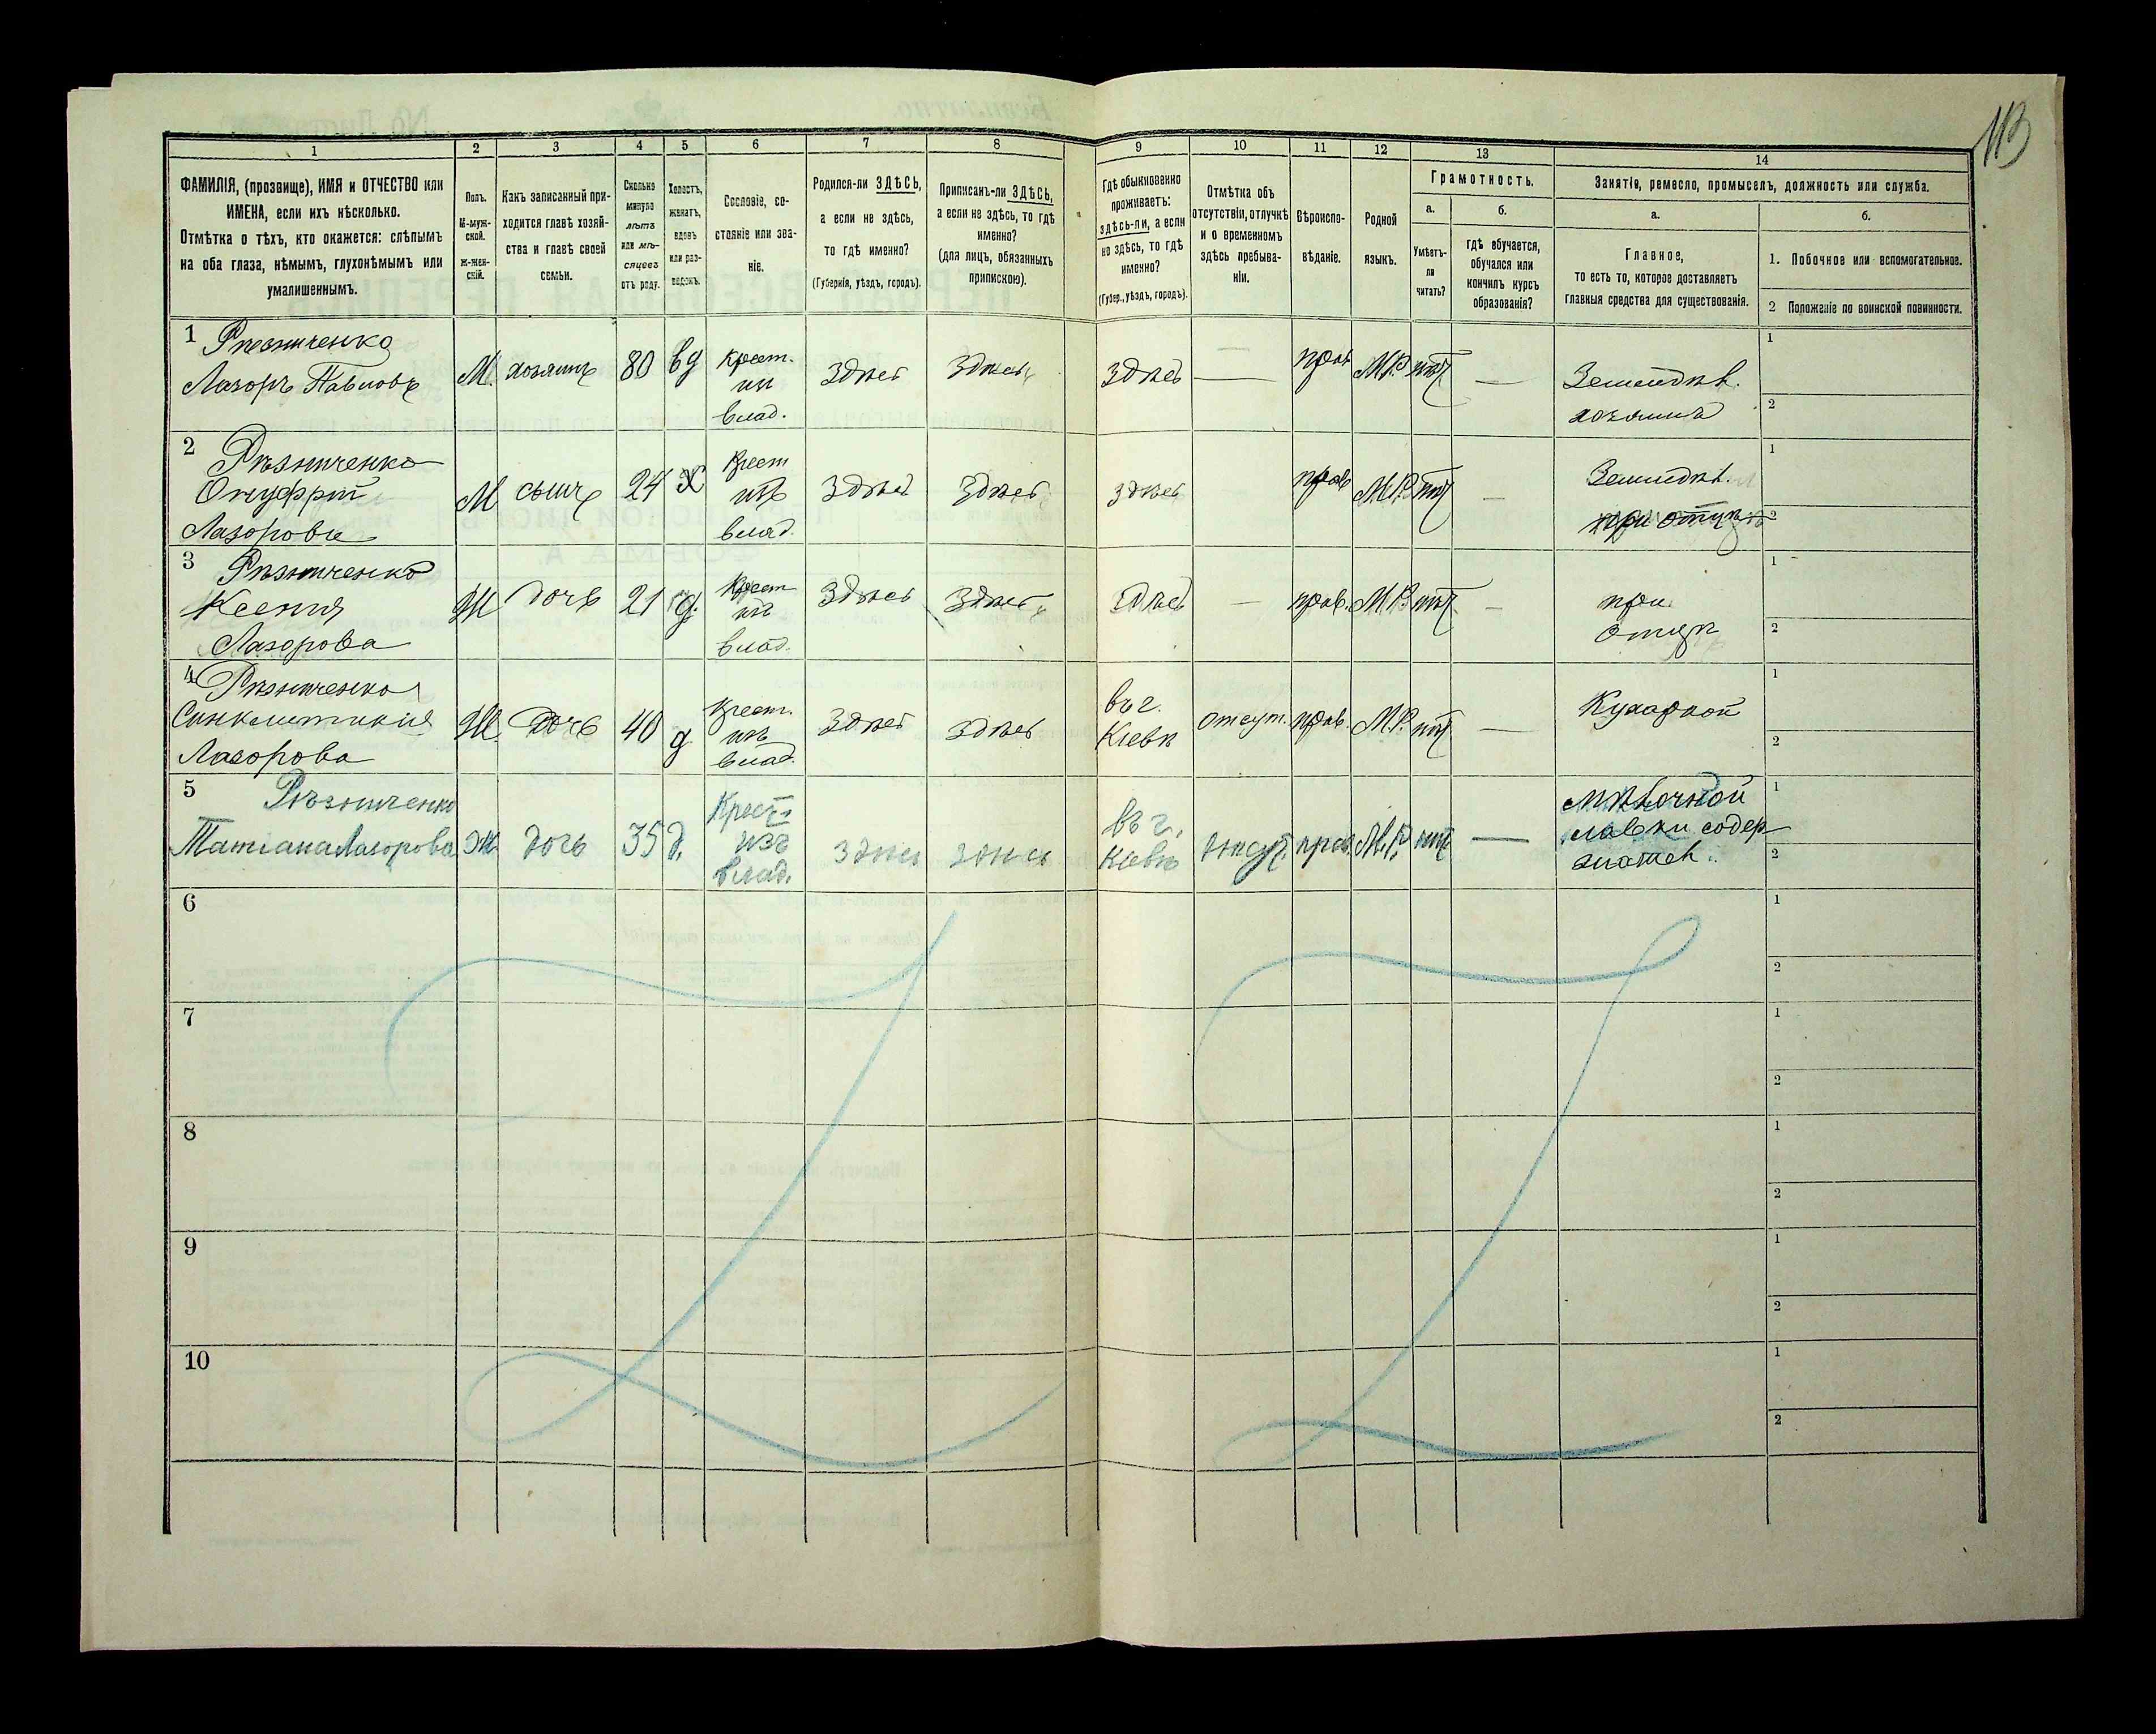 113
1 2 3 4 5 6 7 8 9 10 11 12 13 14
ФАМИЛІЯ, (прозвище), ИМЯ и ОТЧЕСТВО или
ИМЕНА, если ихъ нѣсколько.
Отмѣтка о тѣхъ, кто окажется: слѣпымъ
на оба глаза, нѣмымъ, глухонѣмымъ или
умалишеннымъ.
Полъ.
М-муж-
ской.
ж-жен-
скій.
Какъ записанный при-
ходится главѣ хозяй-
ства и главѣ своей
семьи.
Сколько
минуло
лѣтъ
или мѣ-
сяцевъ
отъ роду.
Холостъ,
женатъ,
вдовъ
или раз-
веденъ.
Сословіе, со-
стояніе или зва-
ніе.
Родился-ли ЗДѢСЬ,
а если не здѣсь,
то гдѣ именно?
(Губернія, уѣздъ, городъ).
Приписанъ-ли ЗДѢСЬ,
а если не здѣсь, то гдѣ
именно?
(для лицъ, обязанныхъ
припискою).
Гдѣ обыкновенно
проживаетъ:
здѣсь-ли, а если
не здѣсь, то гдѣ
именно?
(Губер., уѣздъ, городъ).
Отмѣтка объ
отсутствіи, отлучкѣ
и о временномъ
здѣсь пребыва-
ніи.
Вѣроиспо-
вѣданіе.
Родной
языкъ.
Грамотность.
а.
Умѣетъ-
ли
читать?
б.
гдѣ обучается,
обучался или
кончилъ курсъ
образованія?
Занятіе, ремесло, промыселъ, должность или служба.
а.
Главное,
то есть то, которое доставляетъ
главныя средства для существованія.
б.
1. Побочное или вспомогательное.
2 Положеніе по воинской повинности.
1 Рѣзниченко
Лазоръ Павловъ
М. хозяинъ 80 вд
Крест.
из
влад.
здѣсь здѣсь здѣсь — прав М.Р. нѣт —
Земледѣл.
хозяинъ
1
2
2 Рѣзниченко
Онуфрій
Лазоровъ
М сынъ 24 х
Крест
изъ
влад.
здѣсь здѣсь здѣсь прав М.Р. нѣт —
Земледѣл.
при отцѣ
1
2
3 Рѣзниченко
Ксенія
Лазорова
Ж дочь 21 д.
Крест
изъ
влад.
здѣсь здѣсь здѣсь — прав. М.Р. нѣт —
при
отцѣ
1
2
4 Рѣзниченко
Синклитикія
Лазорова
Ж. дочь 40 д
Крест.
изъ
влад.
здѣсь здѣсь
въ г.
Кіевѣ
отсут. прав. М.Р. нѣт —
Кухаркой
1
2
5 Рѣзниченко
Татіана Лазорова
Ж дочь 35 д.
Крест.
изъ
влад.
здѣсь здѣсь
въ г.
Кіевѣ
отсут. прав. М.Р. нѣт —
мѣлочной
лавки содер
1
2
6
1
2
7
1
2
8
1
2
9
1
2
10
1
2